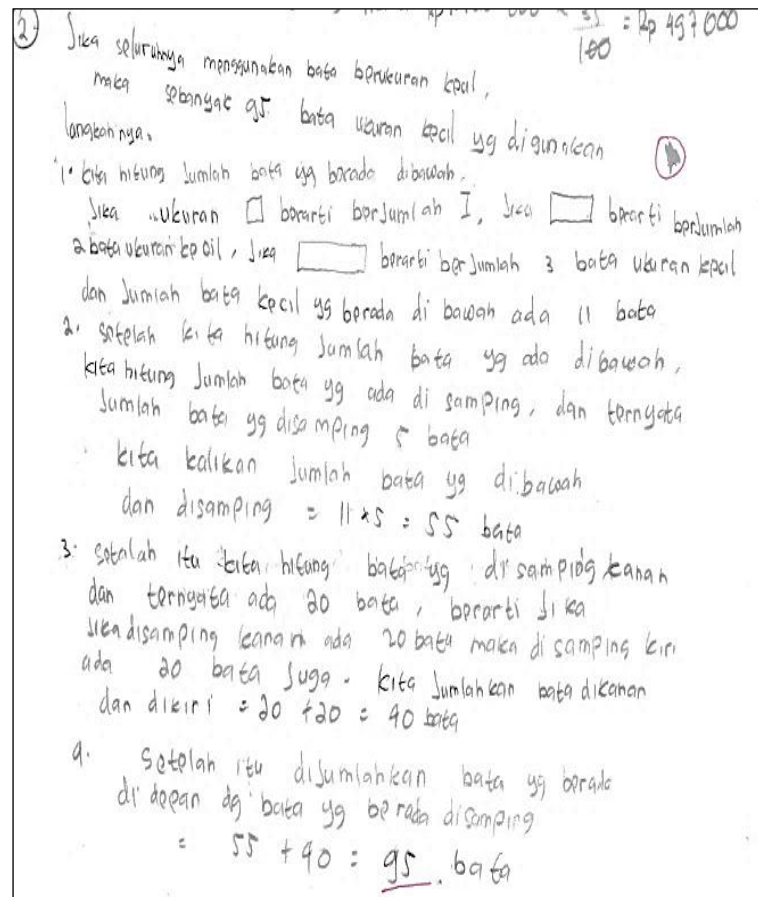 = Rp 497 000
100
2. Jika seluruhnya menggunakan bata berukuran kecil,
maka sebanyak 95 bata ukuran kecil yg digunakan
langkahnya.
1. kita hitung Jumlah bata yg berada dibawah.
Jika ukuran □ berarti berjumlah I, Jika ▭ berarti berjumlah
2 bata ukuran kecil, Jika ▭ berarti berjumlah 3 bata ukuran kecil
dan Jumlah bata kecil yg berada di bawah ada 11 bata
2. setelah kita hitung Jumlah bata yg ada dibawah,
kita hitung Jumlah bata yg ada di samping, dan ternyata
Jumlah bata yg disamping 5 bata
kita kalikan Jumlah bata yg dibawah
dan disamping = 11 x 5 = 55 bata
3. setalah itu kita hitung bata yg disamping kanan
dan ternyata ada 20 bata, berarti Jika
Jika disamping kanan ada 20 bata maka di samping kiri
ada 20 bata Juga. kita Jumlahkan bata dikanan
dan dikiri = 20 + 20 = 40 bata
4. Setelah itu diJumlahkan bata yg berada
di depan dg bata yg berada disamping
= 55 + 40 = 95 bata